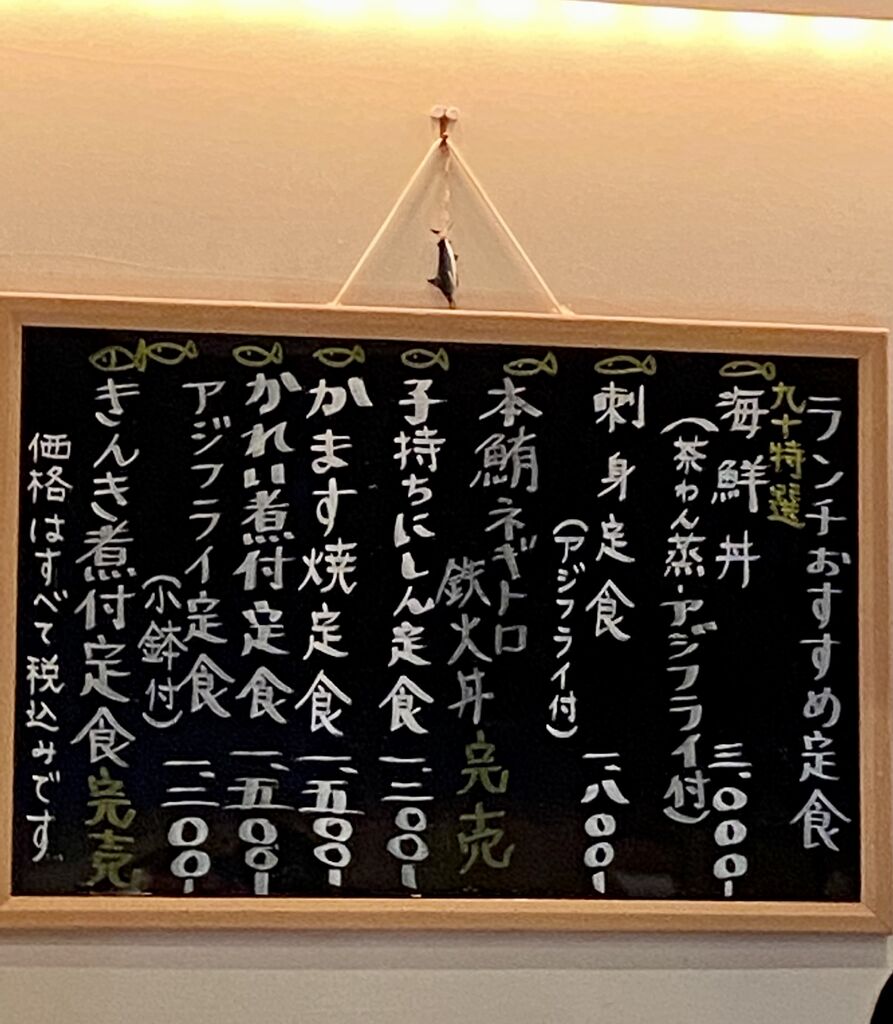 ランチおすすめ定食
九十特選
海鮮丼 三、〇〇〇
(茶わん蒸・アジフライ付)
刺身定食 一、八〇〇
(アジフライ付)
本鮪ネギトロ
鉄火丼 完売
子持ちにしん定食 一、二〇〇
かます焼定食 一、五〇〇
かれい煮付定食 一、五〇〇
アジフライ定食 一、二〇〇
(小鉢付)
きんき煮付定食 完売
価格はすべて税込みです